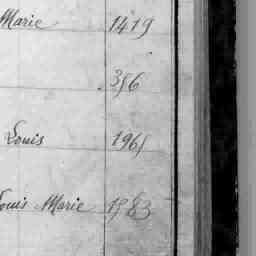 Marie 1419
356
Louis 1965
Louis Marie 1583